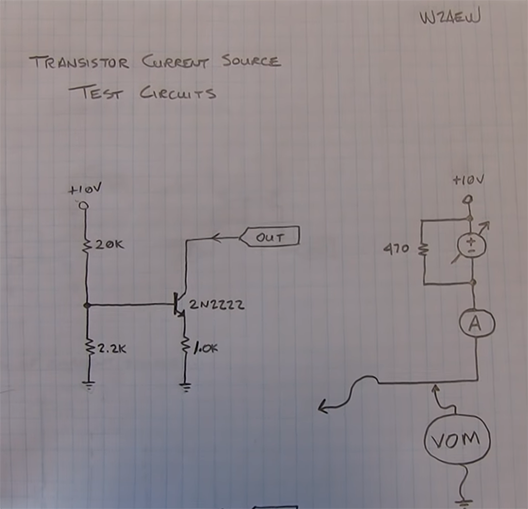 W2AEW
TRANSISTOR CURRENT SOURCE
TEST CIRCUITS
+10V
20K
OUT
2N2222
2.2K
1.0K
+10V
470
+
-
A
VOM